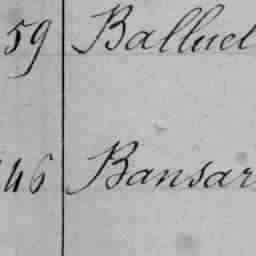 59 Balluet
46 Bansar